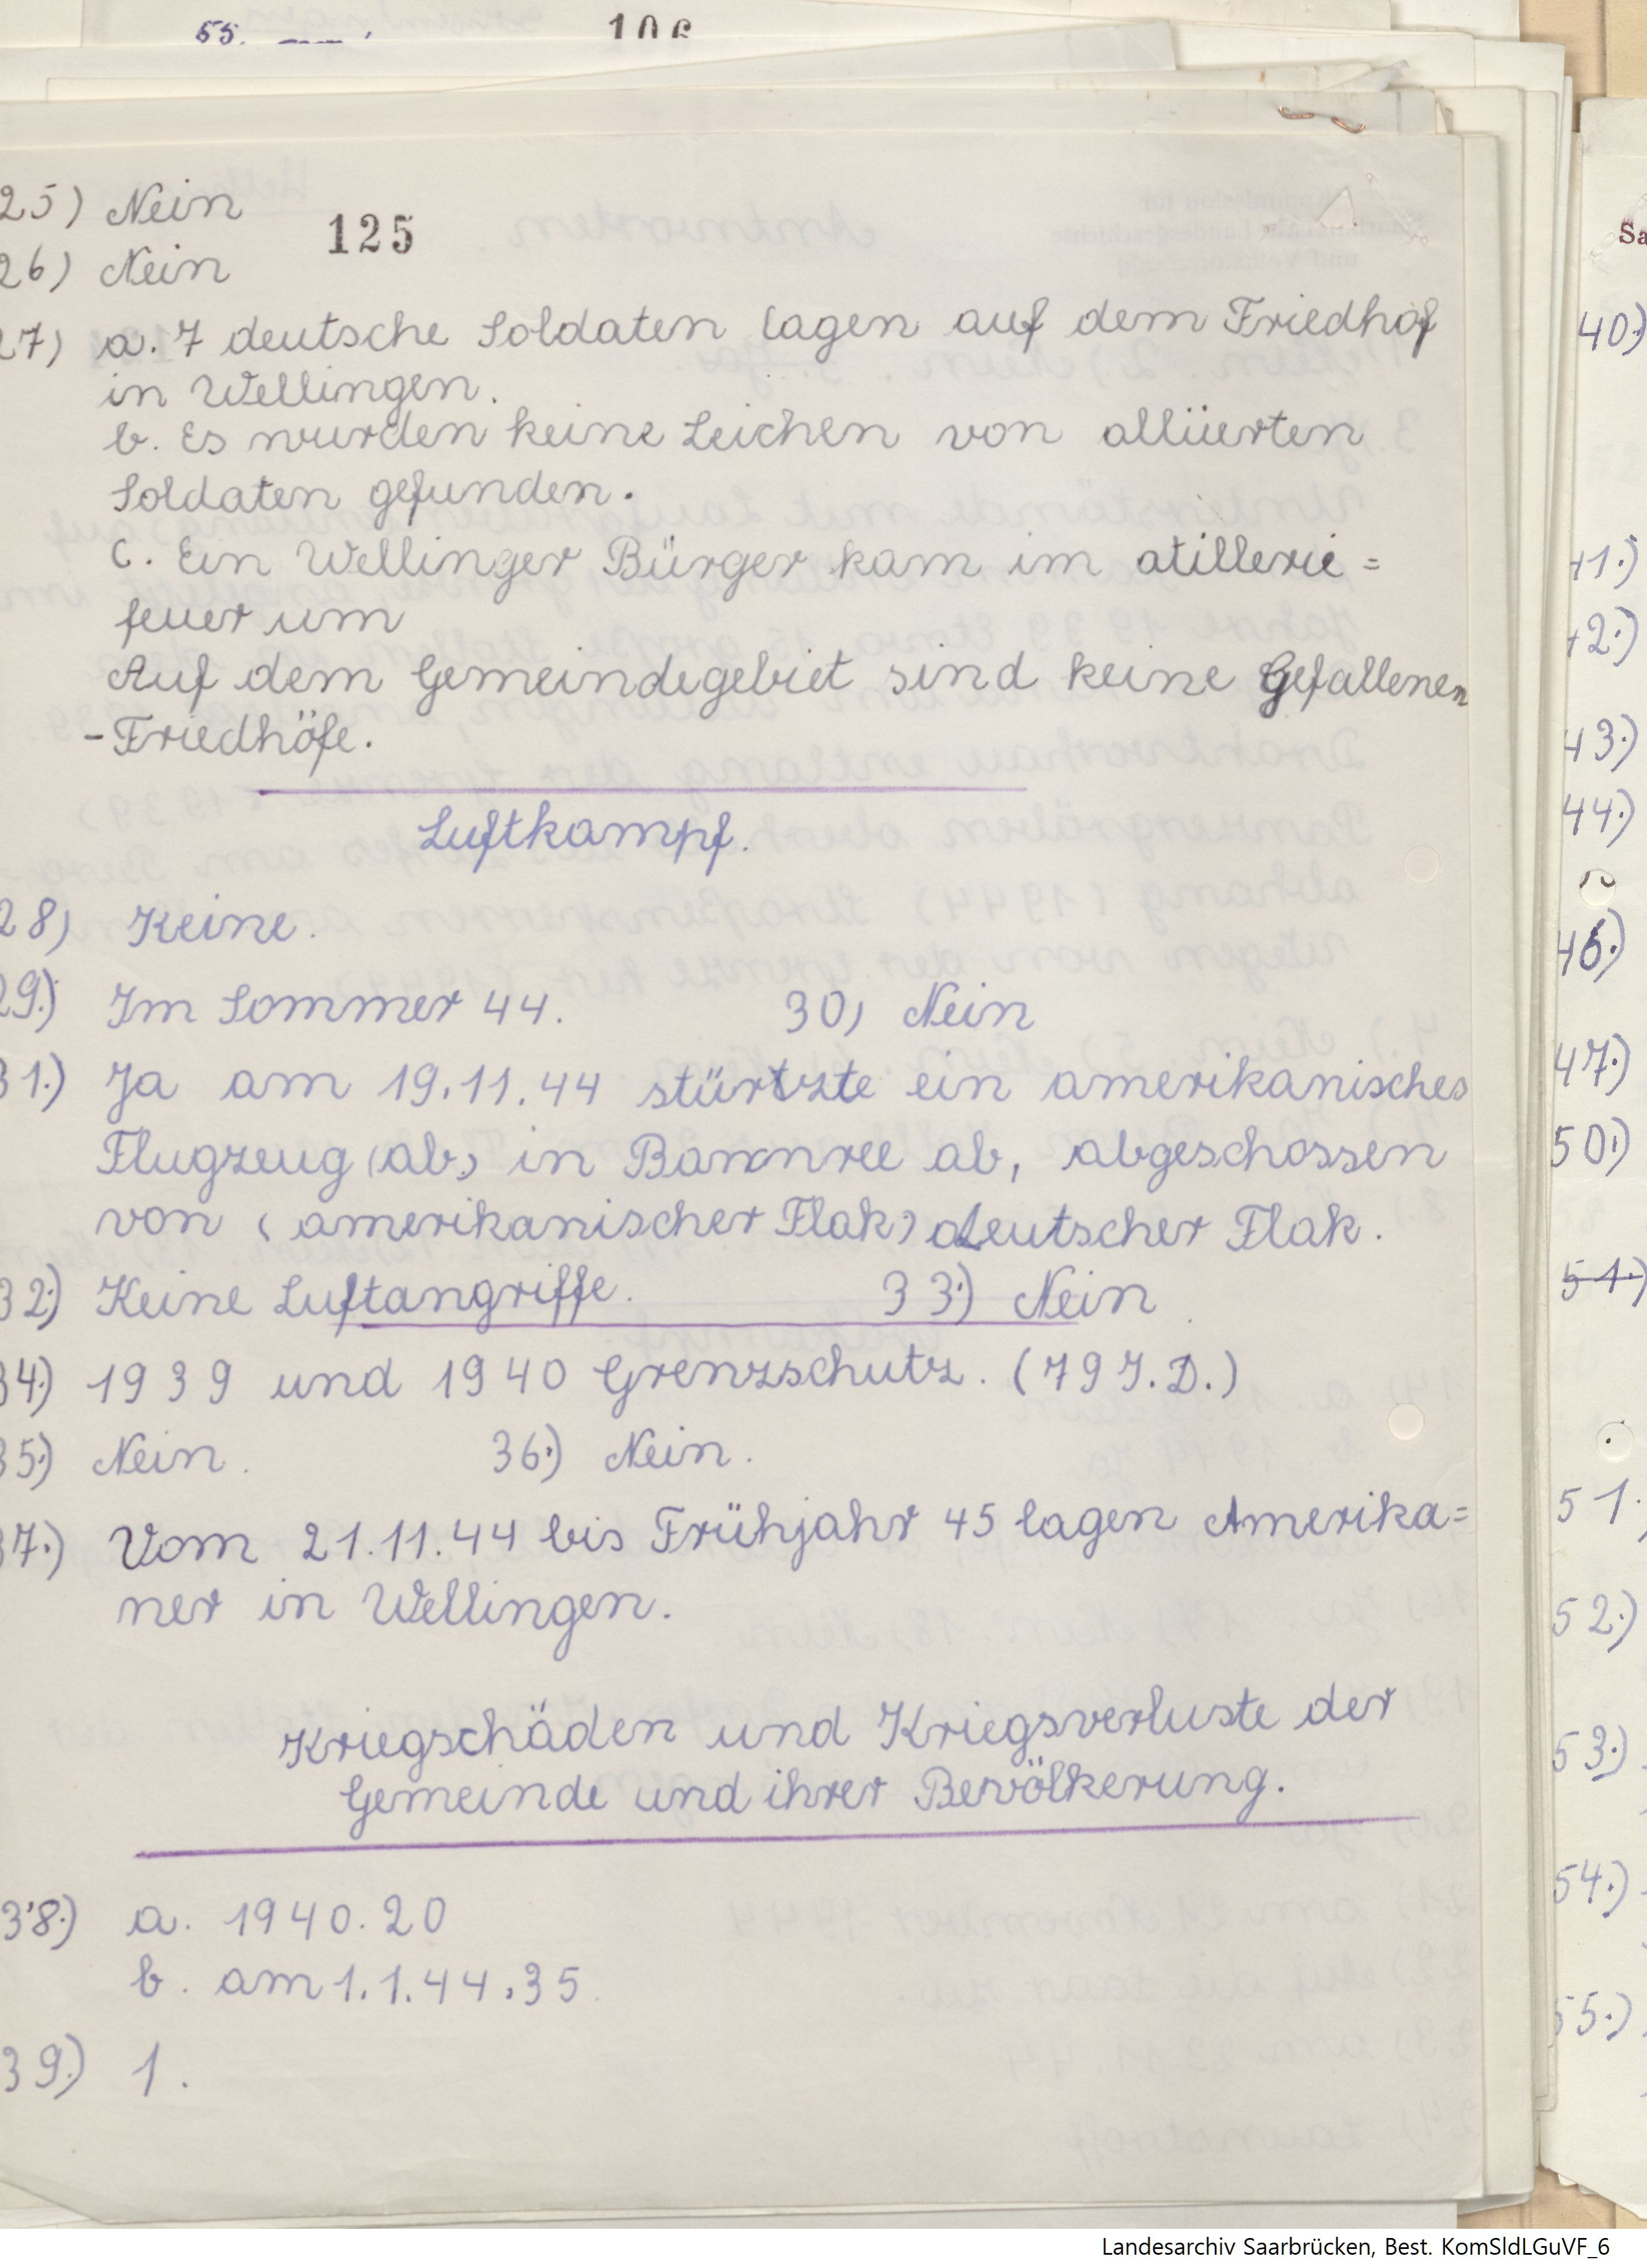 55.
106
25) Nein
125
26) Nein
27) a. 7 deutsche Soldaten lagen auf dem Friedhof
in Wellingen.
b. Es wurden keine Leichen von alliierten
Soldaten gefunden.
c. Ein Wellinger Bürger kam im atillerie=
feuer um
Auf dem Gemeindegebiet sind keine Gefallenen
-Friedhöfe.
Luftkampf.
28) Keine.
29.) Im Sommer 44. 30) Nein
31.) Ja am 19.11.44 stürtzte ein amerikanisches
Flugzeug (ab) in Bannree ab, abgeschossen
von (amerikanischer Flak) deutscher Flak.
32.) Keine Luftangriffe. 33.) Nein
34.) 1939 und 1940 Grenzschutz. (79 J.D.)
35.) Nein. 36.) Nein.
37.) Vom 21.11.44 bis Frühjahr 45 lagen Amerika=
ner in Wellingen.
Kriegschäden und Kriegsverluste der
Gemeinde und ihrer Bevölkerung.
38.) a. 1940. 20
b. am 1.1.44.35
39.) 1.
Sa
40)
41.)
42.)
43.)
44.)
46.)
47.)
50.)
51.)
51.
52.)
53.)
54.)
55.)
Landesarchiv Saarbrücken, Best. KomSldLGuVF_6